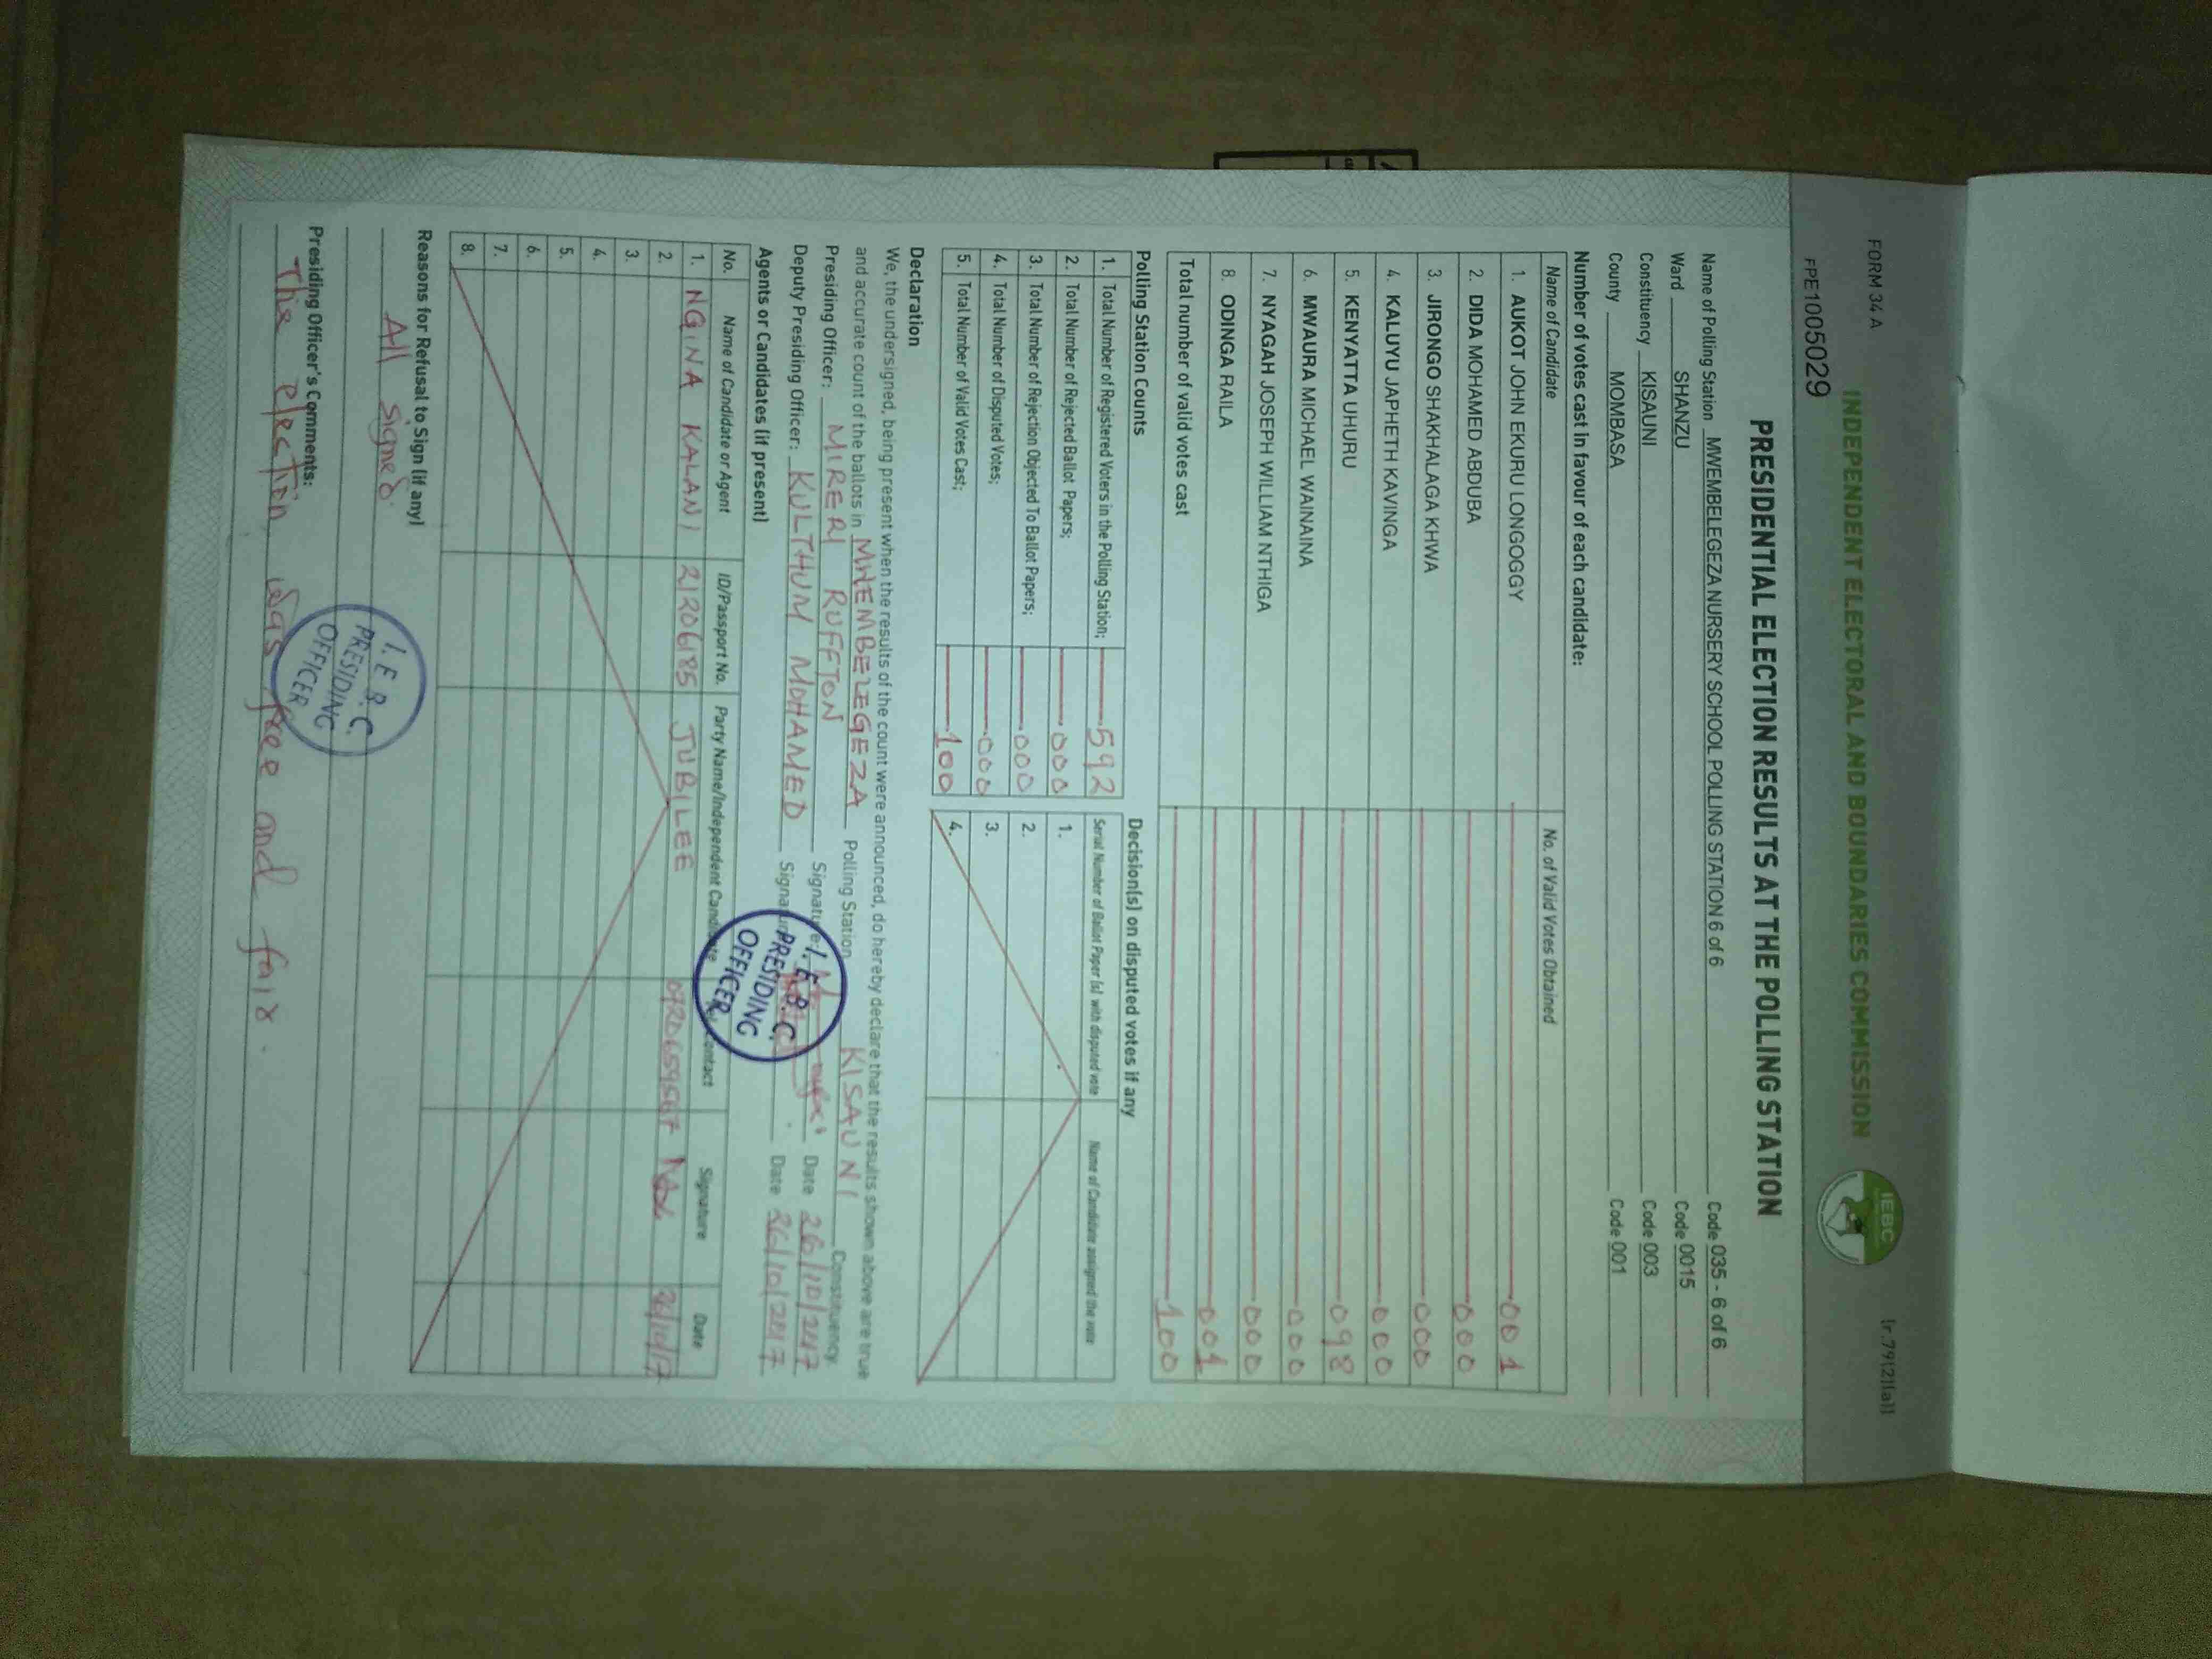 FORM 34 A
(r.79(2)(a))
INDEPENDENT ELECTORAL AND BOUNDARIES COMMISSION
IEBC
FPE1005029
PRESIDENTIAL ELECTION RESULTS AT THE POLLING STATION
Name of Polling Station MWEMBELEGEZA NURSERY SCHOOL POLLING STATION 6 of 6 Code 035 - 6 of 6
Ward SHANZU Code 0015
Constituency KISAUNI Code 003
County MOMBASA Code 001
Number of votes cast in favour of each candidate:
Name of Candidate No. of Valid Votes Obtained
1. AUKOT JOHN EKURU LONGOGGY 001
2. DIDA MOHAMED ABDUBA 000
3. JIRONGO SHAKHALAGA KHWA 000
4. KALUYU JAPHETH KAVINGA 000
5. KENYATTA UHURU 098
6. MWAURA MICHAEL WAINAINA 000
7. NYAGAH JOSEPH WILLIAM NTHIGA 000
8. ODINGA RAILA 001
Total number of valid votes cast 100
Polling Station Counts
1. Total Number of Registered Voters in the Polling Station; 592
2. Total Number of Rejected Ballot Papers; 000
3. Total Number of Rejection Objected To Ballot Papers; 000
4. Total Number of Disputed Votes; 000
5. Total Number of Valid Votes Cast; 100
Decision(s) on disputed votes if any
Serial Number of Ballot Paper (s) with disputed vote Name of Candidate assigned the vote
1.
2.
3.
4.
Declaration
We, the undersigned, being present when the results of the count were announced, do hereby declare that the results shown above are true
and accurate count of the ballots in MWEMBELEGEZA Polling Station KISAUNI Constituency
Presiding Officer: MIRERI RUFFTON Signature: Date 26/10/2017
Deputy Presiding Officer: KULTHUM MOHAMED Signature Date 26/10/2017
I.E.B.C.
PRESIDING
OFFICER
Agents or Candidates (if present)
No. Name of Candidate or Agent ID/Passport No. Party Name/Independent Candidate Contact Signature Date
1. NGINA KALANI 21206185 JUBILEE 26/10/17
2.
3.
4.
5.
6.
7.
8.
Reasons for Refusal to Sign (if any)
All signed.
I.E.B.C.
PRESIDING
OFFICER
Presiding Officer's Comments:
The election was free and fair.